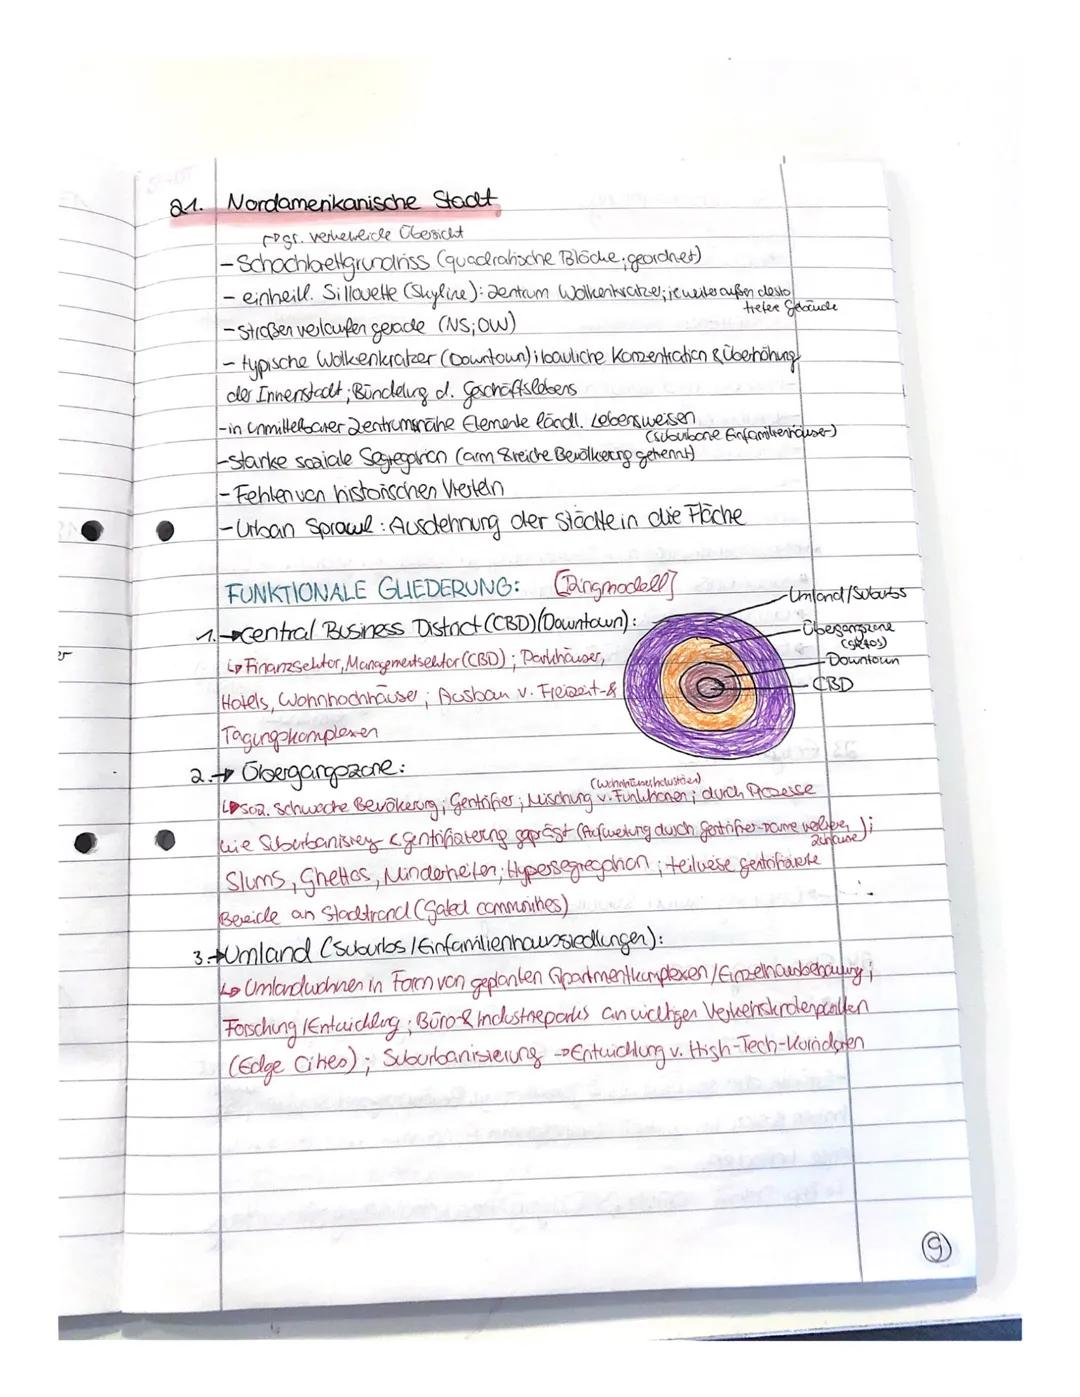 21. Nordamerikanische Stadt
→ gr. verkehrliche Übersicht
- Schachbrettgrundriss (quadratische Blöcke; geordnet)
- einheitl. Sillouette (Skyline): Zentrum Wolkenkratzer; je weiter außen desto
tiefere Gebäude
- Straßen verlaufen gerade (NS; OW)
- typische Wolkenkratzer (Downtown); bauliche Konzentration & Überhöhung
der Innenstadt; Bündelung d. Geschäftslebens
- in unmittelbarer Zentrumsnähe Elemente ländl. Lebensweisen
(suburbane Einfamilienhäuser)
- starke soziale Segregation (arm & reiche Bevölkerung getrennt)
- Fehlen von historischen Vierteln
- Urban Sprawl: Ausdehnung der Städte in die Fläche
FUNKTIONALE GLIEDERUNG: [Ringmodell]
Umland/Suburbs
Übergangszone
(Ghettos)
Downtown
CBD
1. → Central Business District (CBD) (Downtown):
↳ Finanzsektor, Managementsektor (CBD); Parkhäuser,
Hotels, Wohnhochhäuser; Ausbau v. Freizeit- &
Tagungskomplexen
2. → Übergangszone:
↳ soz. schwache Bevölkerung; Gentrifier; Mischung v. Funktionen; durch Prozesse
wie Suburbanisierg & Gentrifizierung geprägt (Aufwertung durch Gentrifier
Slums, Ghettos, Minderheiten; Hypersegregation; teilweise gentrifizierte
Bereiche an Stadtrand (Gated communities)
3. → Umland (Suburbs / Einfamilienhaussiedlungen):
↳ Umlandwohnen in Form von geplanten Apartmentkomplexen / Einzelhausbebauung;
Forschung / Entwicklung; Büro- & Industrieparks an wichtigen Verkehrsknotenpunkten
(Edge Cities); Suburbanisierung → Entwicklung v. High-Tech-Korridoren
9